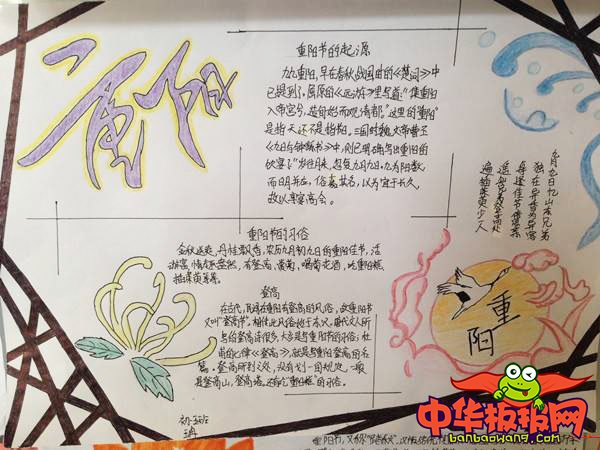 重阳
重阳节的起源
九九重阳，早在春秋战国时的《楚词》中
已提到了，屈原的《远游》里写道："集重阳
入帝宫兮，造旬始而观清都"。这里的"重阳"
是指天，还不是指节日。三国时魏文帝曹丕
《九日与钟繇书》中，则已明确写出重阳的
饮宴了："岁往月来，忽复九月九日。九为阳数，
而日月并应，俗嘉其名，以为宜于长久，
故以享宴高会。
九月九日忆山东兄弟
独在异乡为异客
每逢佳节倍思亲
遥知兄弟登高处
遍插茱萸少一人
重阳节的习俗
金秋送爽，丹桂飘香，农历九月初九日的重阳佳节，活
动丰富，情趣盎然，有登高、赏菊、喝菊花酒、吃重阳糕、
插茱萸等等。
登高
在古代，民间在重阳有登高的风俗，故重阳节
又叫"登高节"。相传此风俗始于东汉。唐代文人所
写的登高诗很多，大多是写重阳节的习俗；杜
甫的七律《登高》，就是写重阳登高的名
篇。登高所到之处，没有划一的规定，一般
是登高山、登高塔。还有吃"重阳糕"的习俗。
重阳
中华板报网
banbaowang.com